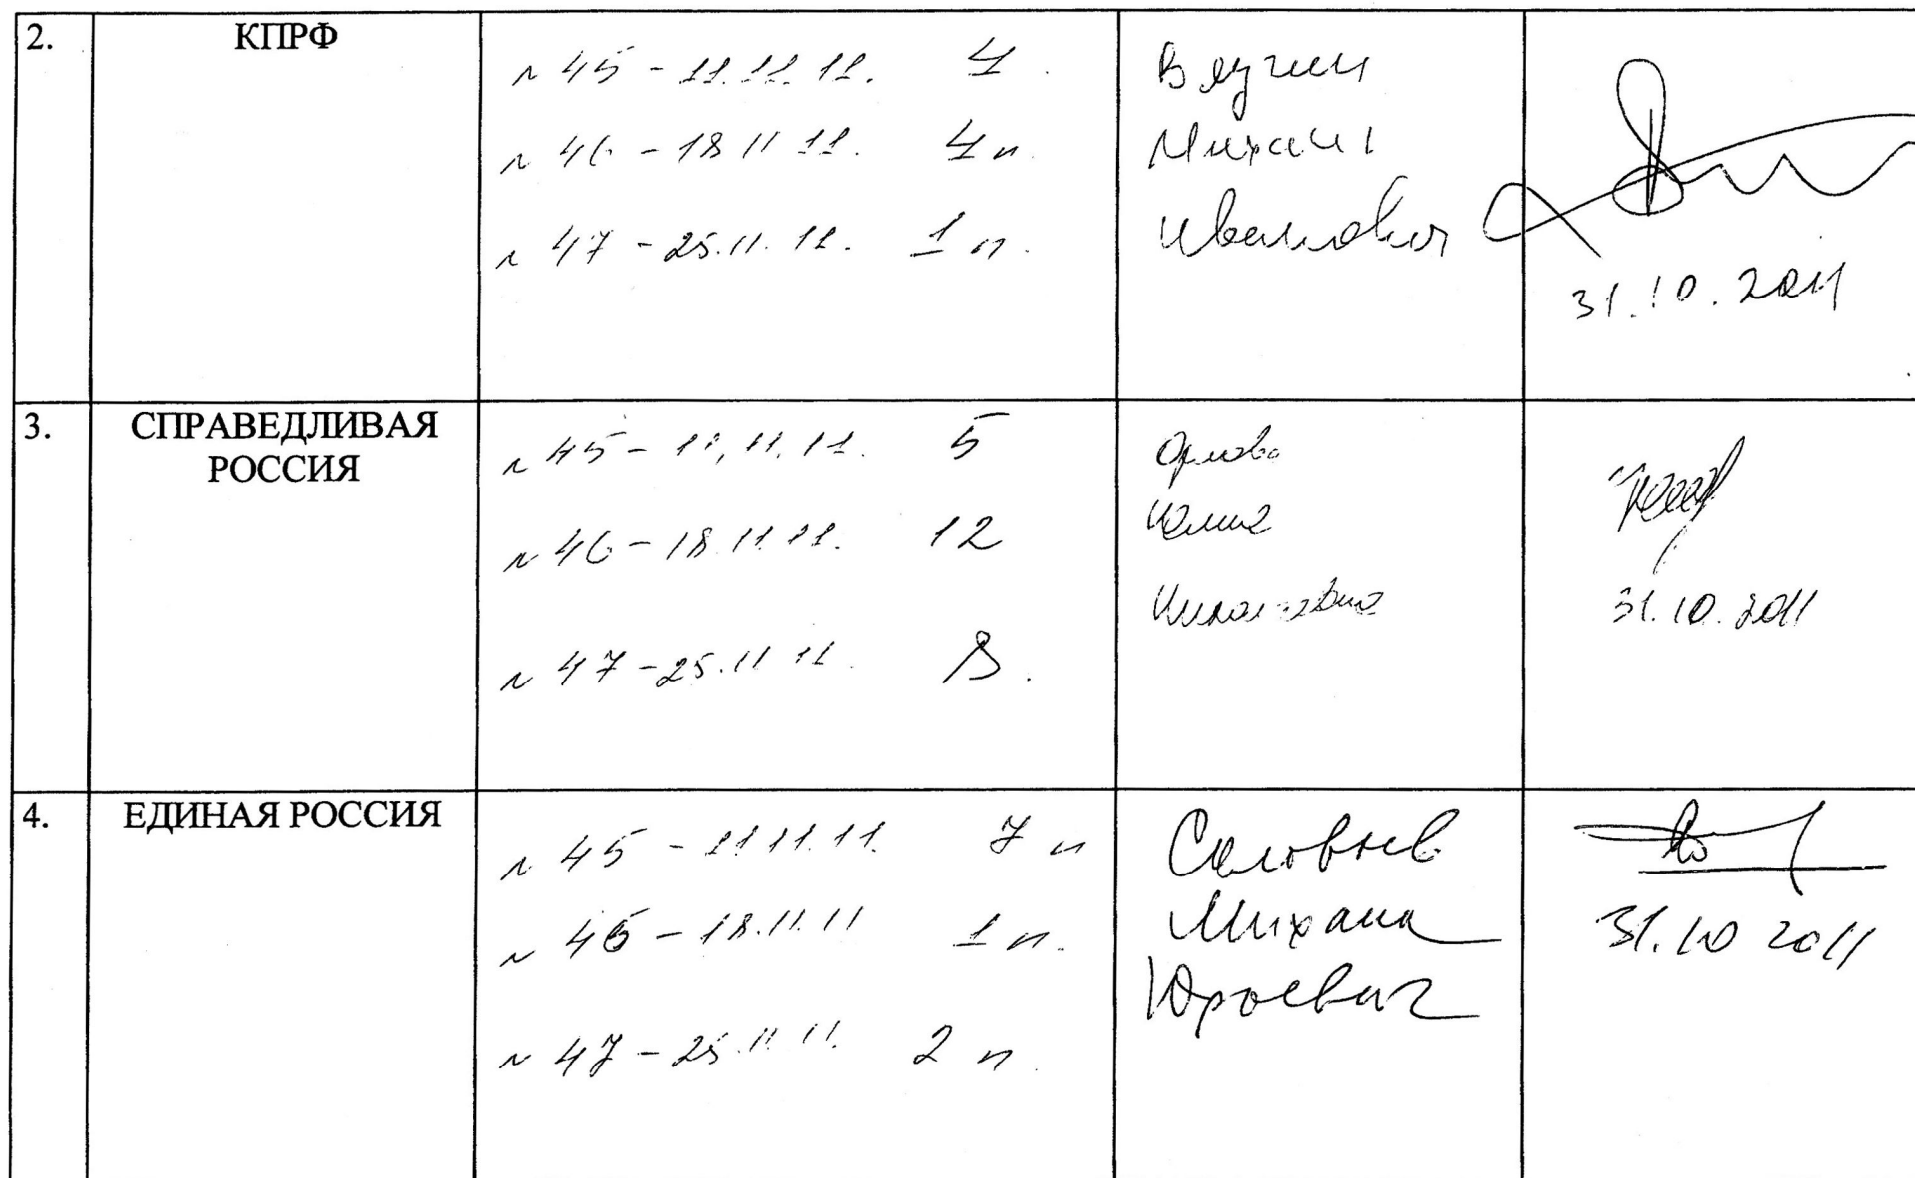 2.
КПРФ
№ 45 - 11.11.11. 4.
№ 46 - 18 11 11. 4 п.
№ 47 - 25.11.11. 1 п.
Михаил
Иванович
31.10.2011
3.
СПРАВЕДЛИВАЯ
РОССИЯ
№ 45 - 11.11.11. 5
№ 46 - 18.11.11. 12
№ 47 - 25.11 11. 8.
Орлова
31.10.2011
4.
ЕДИНАЯ РОССИЯ
№ 45 - 11.11.11. 7 п
№ 46 - 18.11.11 1 п.
№ 47 - 25.11.11. 2 п.
Соловьев
Михаил
Юрьевич
31.10 2011